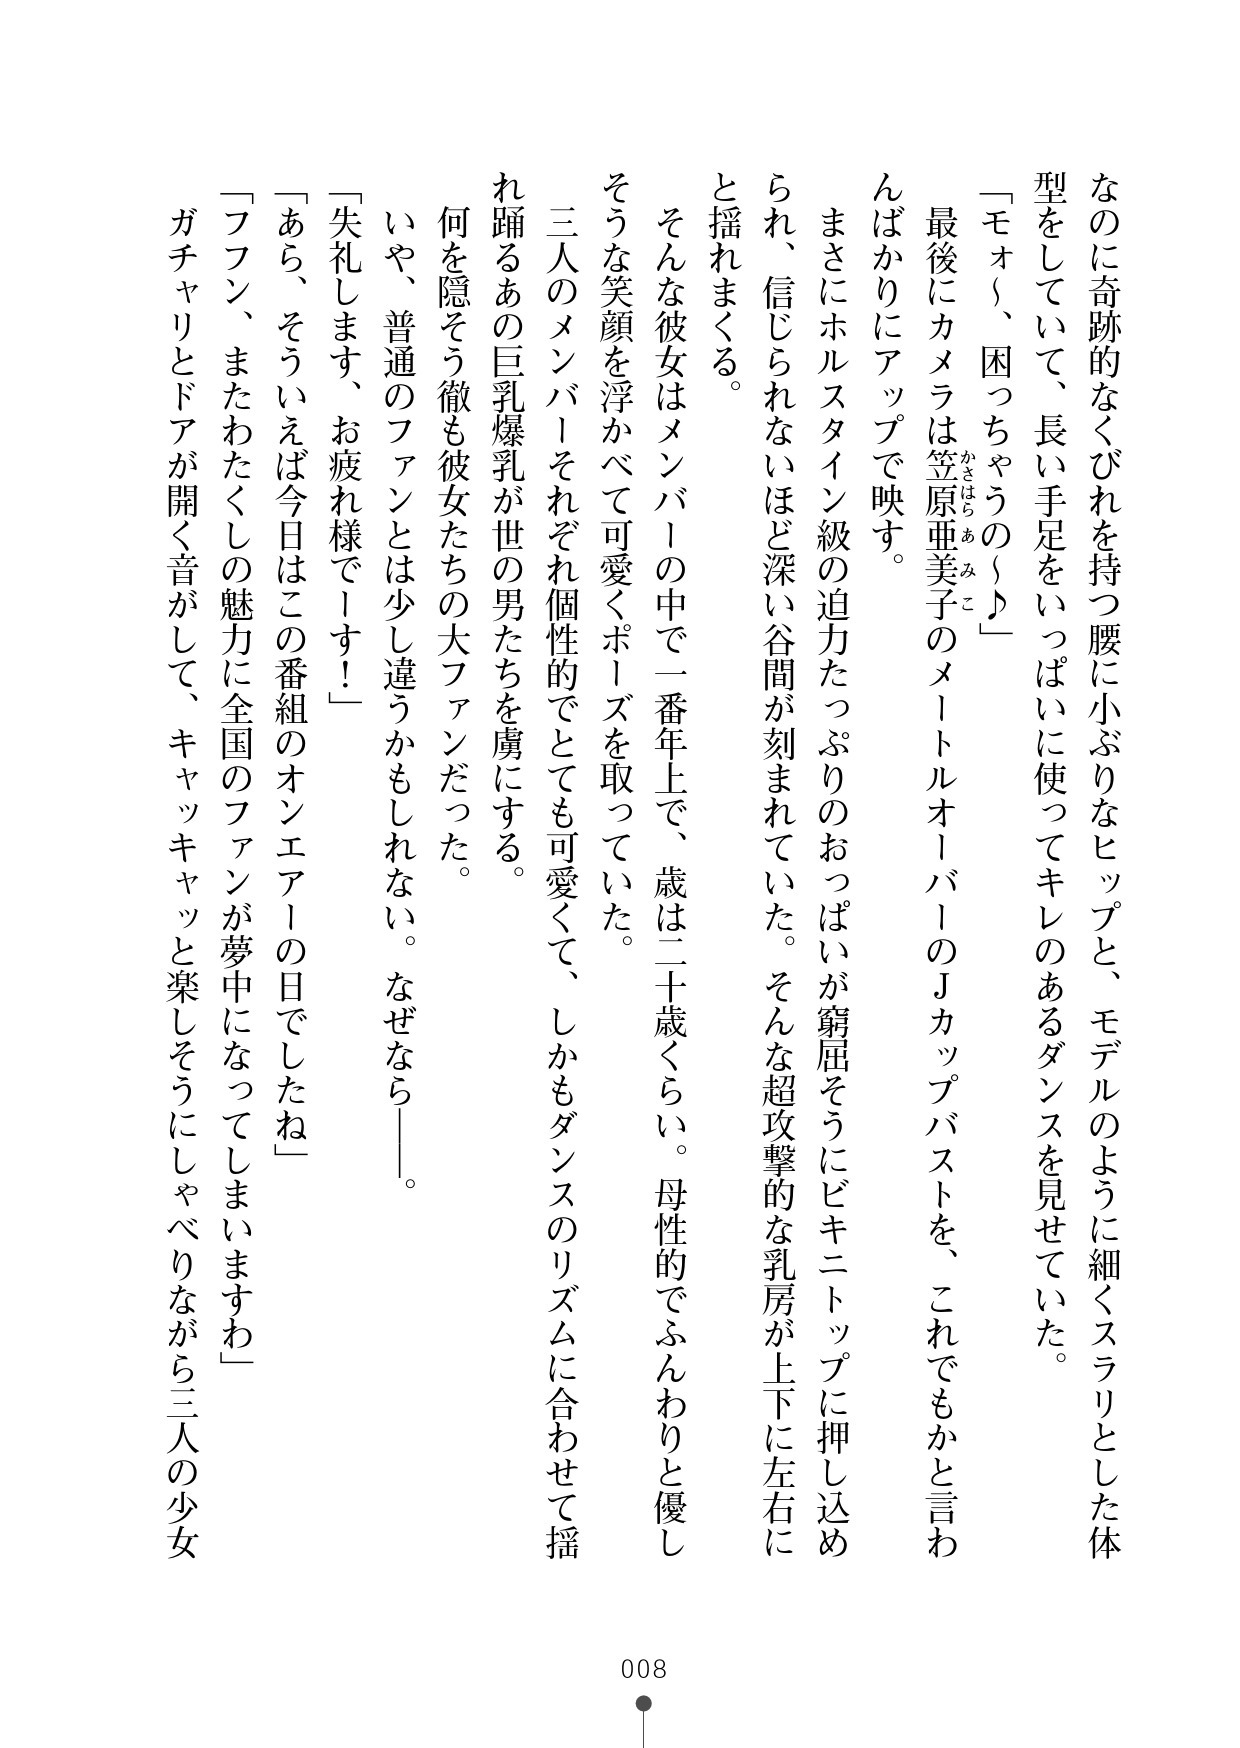 なのに奇跡的なくびれを持つ腰に小ぶりなヒップと、モデルのように細くスラリとした体
型をしていて、長い手足をいっぱいに使ってキレのあるダンスを見せていた。
「モォ〜、困っちゃうの〜♪」
　最後にカメラは笠原亜美子のメートルオーバーのJカップバストを、これでもかと言わ
かさはらあみこ
んばかりにアップで映す。
　まさにホルスタイン級の迫力たっぷりのおっぱいが窮屈そうにビキニトップに押し込め
られ、信じられないほど深い谷間が刻まれていた。そんな超攻撃的な乳房が上下に左右に
と揺れまくる。
　そんな彼女はメンバーの中で一番年上で、歳は二十歳くらい。母性的でふんわりと優し
そうな笑顔を浮かべて可愛くポーズを取っていた。
　三人のメンバーそれぞれ個性的でとても可愛くて、しかもダンスのリズムに合わせて揺
れ踊るあの巨乳爆乳が世の男たちを虜にする。
　何を隠そう徹も彼女たちの大ファンだった。
　いや、普通のファンとは少し違うかもしれない。なぜなら――。
「失礼します、お疲れ様でーす！」
「あら、そういえば今日はこの番組のオンエアーの日でしたね」
「フフン、またわたくしの魅力に全国のファンが夢中になってしまいますわ」
　ガチャリとドアが開く音がして、キャッキャッと楽しそうにしゃべりながら三人の少女
008